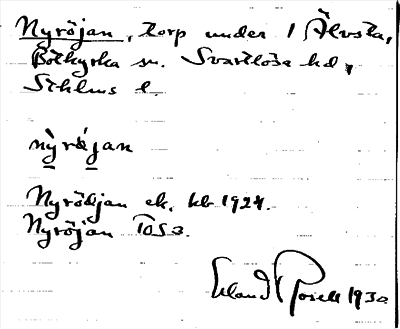 Nyröjan, torp under 1 Älvsta,
Botkyrka sn. Svartlösa hd,
Sthlms l.
nỳrǿjan
Nyröjan ek. kb 1924.
Nyröjan TOS3.
Erland Rosell 1930